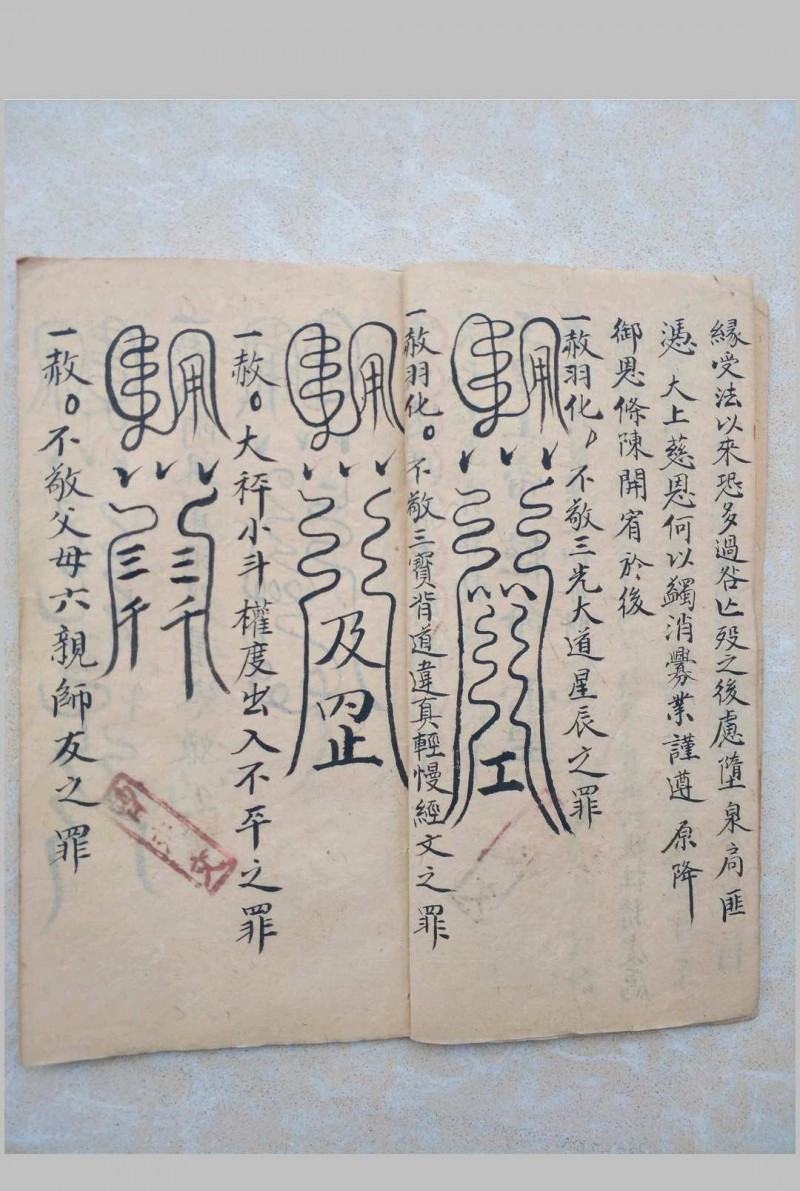 緣受法以來恐多過咎亡歿之後慮墮泉局匪
憑 大上慈恩何以蠲消釁業謹遵 原降
御恩條陳開宥於後
一赦羽化，不敬三光大道星辰之罪
工
一赦羽化。不敬三寶背道違真輕慢經文之罪
及
一赦。大秤小斗權度出入不平之罪
三千 三千
一赦。不敬父母六親師友之罪